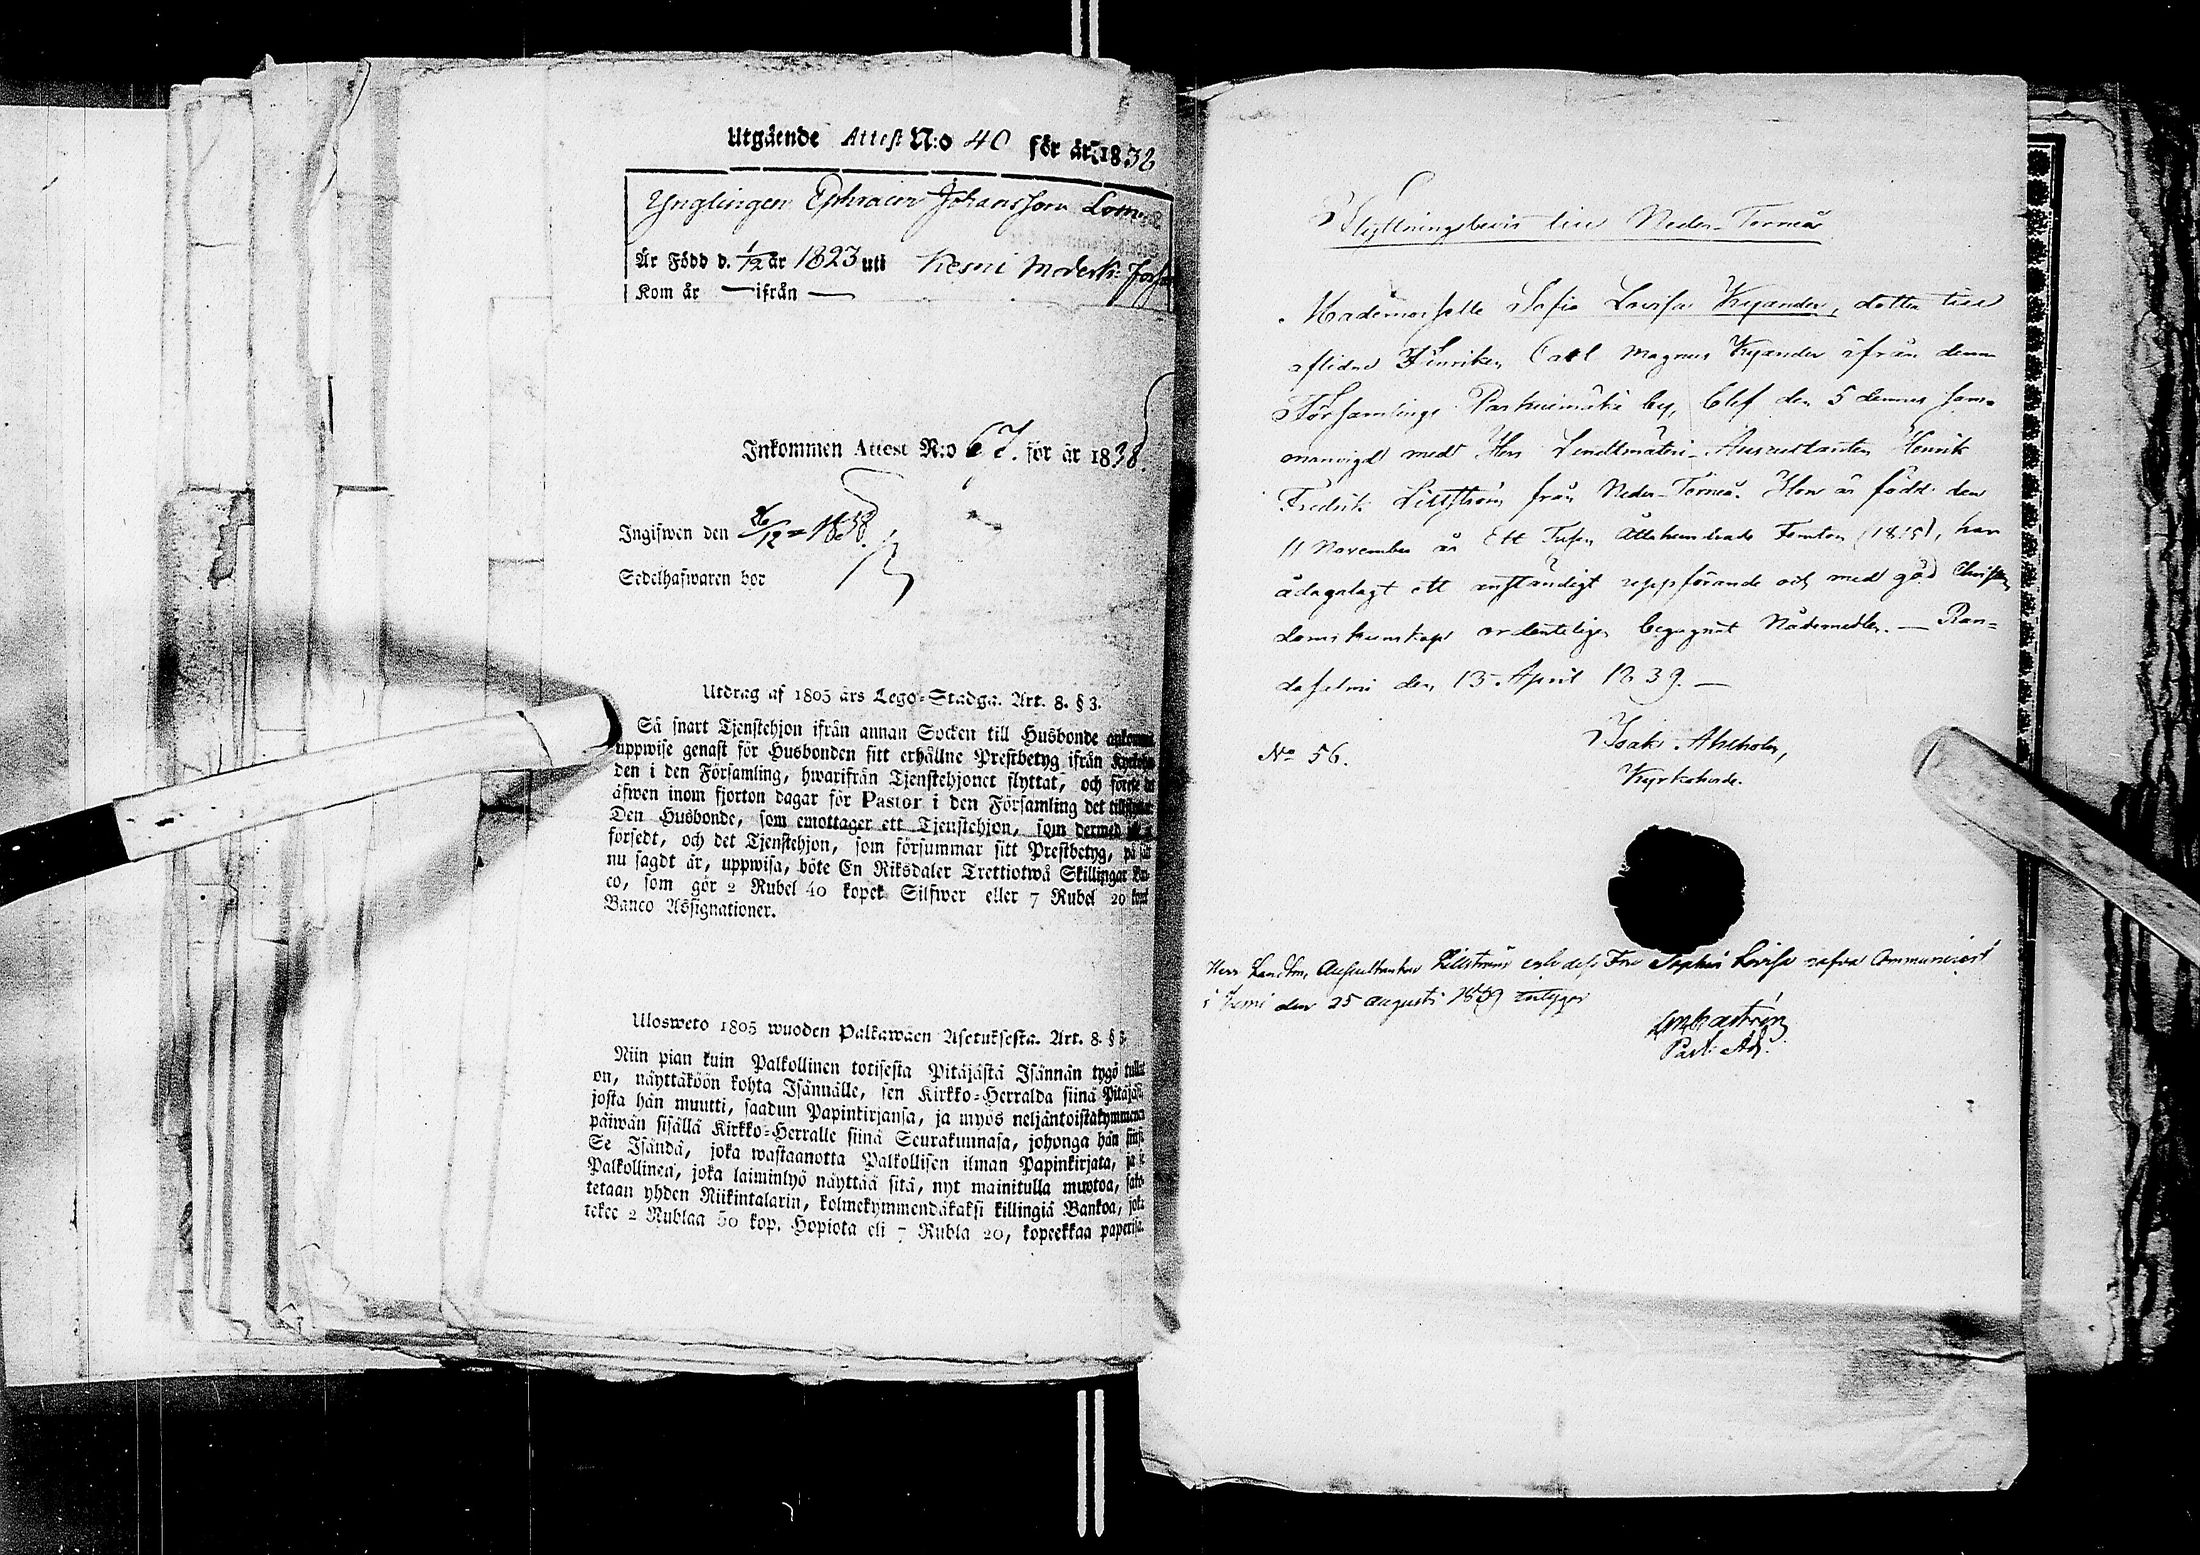 Utgående Attest N:o 40 för år 1838
Ynglingen Ephraim Johansson
Är Född d. 1/12 år 1823 uti Kemi Moderk:
Kom år — ifrån —
Inkommen Attest N:o 67. för år 1838.
Ingifwen den 26/12 1838.
Sedelhafwaren bor
Utdrag af 1805 års Lego-Stadga. Art. 8. § 3.
Så snart Tjenstehjon ifrån annan Socken till Husbonde
uppwise genast för Husbonden sitt erhållne Prestbetyg ifrån
den i den Församling, hwarifrån Tjenstehjonet flyttat, och
äfwen inom fjorton dagar för Pastor i den Församling det
Den Husbonde, som emottager ett Tjenstehjon, som dermed
försedt, och det Tjenstehjon, som försummar sitt Prestbetyg, på
nu sagdt är, uppwisa, böte En Riksdaler Trettiotwå Skillingar
co, som gör 2 Rubel 40 kopek Silfwer eller 7 Rubel 20
Banco Assignationer.
Ulosweto 1805 wuoden Palkawäen Asetuksesta. Art. 8. §
Niin pian kuin Palkollinen totisesta Pitäjästä Isännän tygö
on, näyttäköön kohta Isännälle, sen Kirkko-Herralda siinä
josta hän muutti, saadun Papinkirjansa, ja myös neljäntoistakymmenen
päiwän sisällä Kirkko-Herralle siinä Seurakunnasa, johonga hän
Se Isändä, joka wastaanotta Palkollisen ilman Papinkirjata,
Palkollinen, joka laiminlyö näyttää sitä, nyt mainitulla muotoa,
tetaan yhden Riikintalarin, kolmekymmendäkaksi killingiä Bankoa,
tekee 2 Rublaa 50 kop. Hopiota eli 7 Rubla 20, kopeekkaa
Flyttningsbevis till Neder-Torneå
Mademoiselle Sofia Lovisa Kyander, dotter till
aflidne Fänriken Carl Magnus Kyander ifrån denna
Församlings by, blef den 5 dennes sam-
manvigd med Herr Landtmäteri-Auscultanten Henrik
Fredrik Lillström från Neder-Torneå. Hon är född den
11 November år Ett Tusen Åttahundrade Femton (1815), har
ådagalagt ett anständigt uppförande och med god Christen-
doms kunskap ordenteligen begagnat Nådemedlen. — Ran-
dasalmi den 13 April 1839. —
Isak
Kyrkoherde.
No 56.
Herr Landtm. Auscultanten Lillström och dess Fru Sophia Lovisa hafva Communicerat
i Kemi den 25 augusti 1839 intygar
Past: Adj: